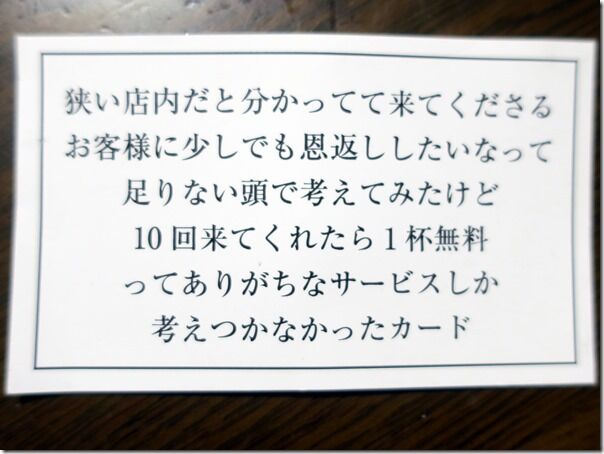 狭い店内だと分かってて来てくださる
お客様に少しでも恩返ししたいなって
足りない頭で考えてみたけど
10回来てくれたら1杯無料
ってありがちなサービスしか
考えつかなかったカード